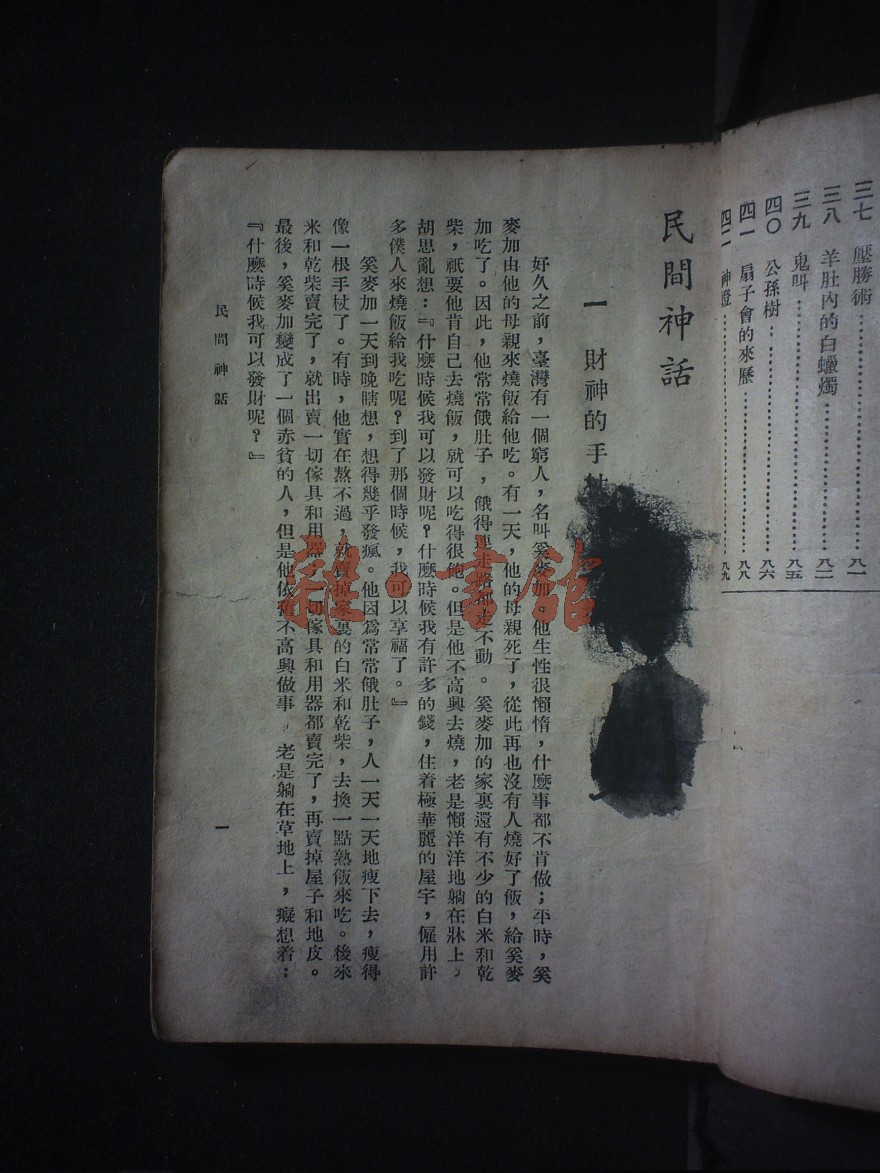 三七　壓勝術…………………八一
三八　羊肚內的白蠟燭…………八二
三九　鬼叫…………………八五
四〇　公孫樹…………………八六
四一　扇子會的來歷……………八八
四二　神燈…………………八九
民間神話
一　財神的手杖
好久之前，臺灣有一個窮人，名叫奚麥加，他生性很懶惰，什麼事都不肯做；平時，奚
麥加由他的母親來燒飯給他吃。有一天，他的母親死了，從此再也沒有人燒好了飯，給奚麥
加吃了。因此，他常常餓肚子，餓得連走路都走不動。奚麥加的家裏還有不少的白米和乾
柴，祇要他肯自己去燒飯，就可以吃得很飽。但是他不高興去燒，老是懶洋洋地躺在牀上，
胡思亂想：『什麼時候我可以發財呢？什麼時候我有許多的錢，住着極華麗的屋宇，僱用許
多僕人來燒飯給我吃呢？到了那個時候，我可以享福了。』
奚麥加一天到晚瞎想，想得幾乎發瘋。他因爲常常餓肚子，人一天一天地瘦下去，瘦得
像一根手杖了。有時，他實在熬不過，就賣掉家裏的白米和乾柴，去換一點熟飯來吃。後來
米和乾柴賣完了，就出賣一切傢具和用器，一切傢具和用器都賣完了，再賣掉屋子和地皮。
最後，奚麥加變成了一個赤貧的人，但是他依舊不高興做事，老是躺在草地上，癡想着：
『什麼時候我可以發財呢？』
民間神話
一
雜·書館